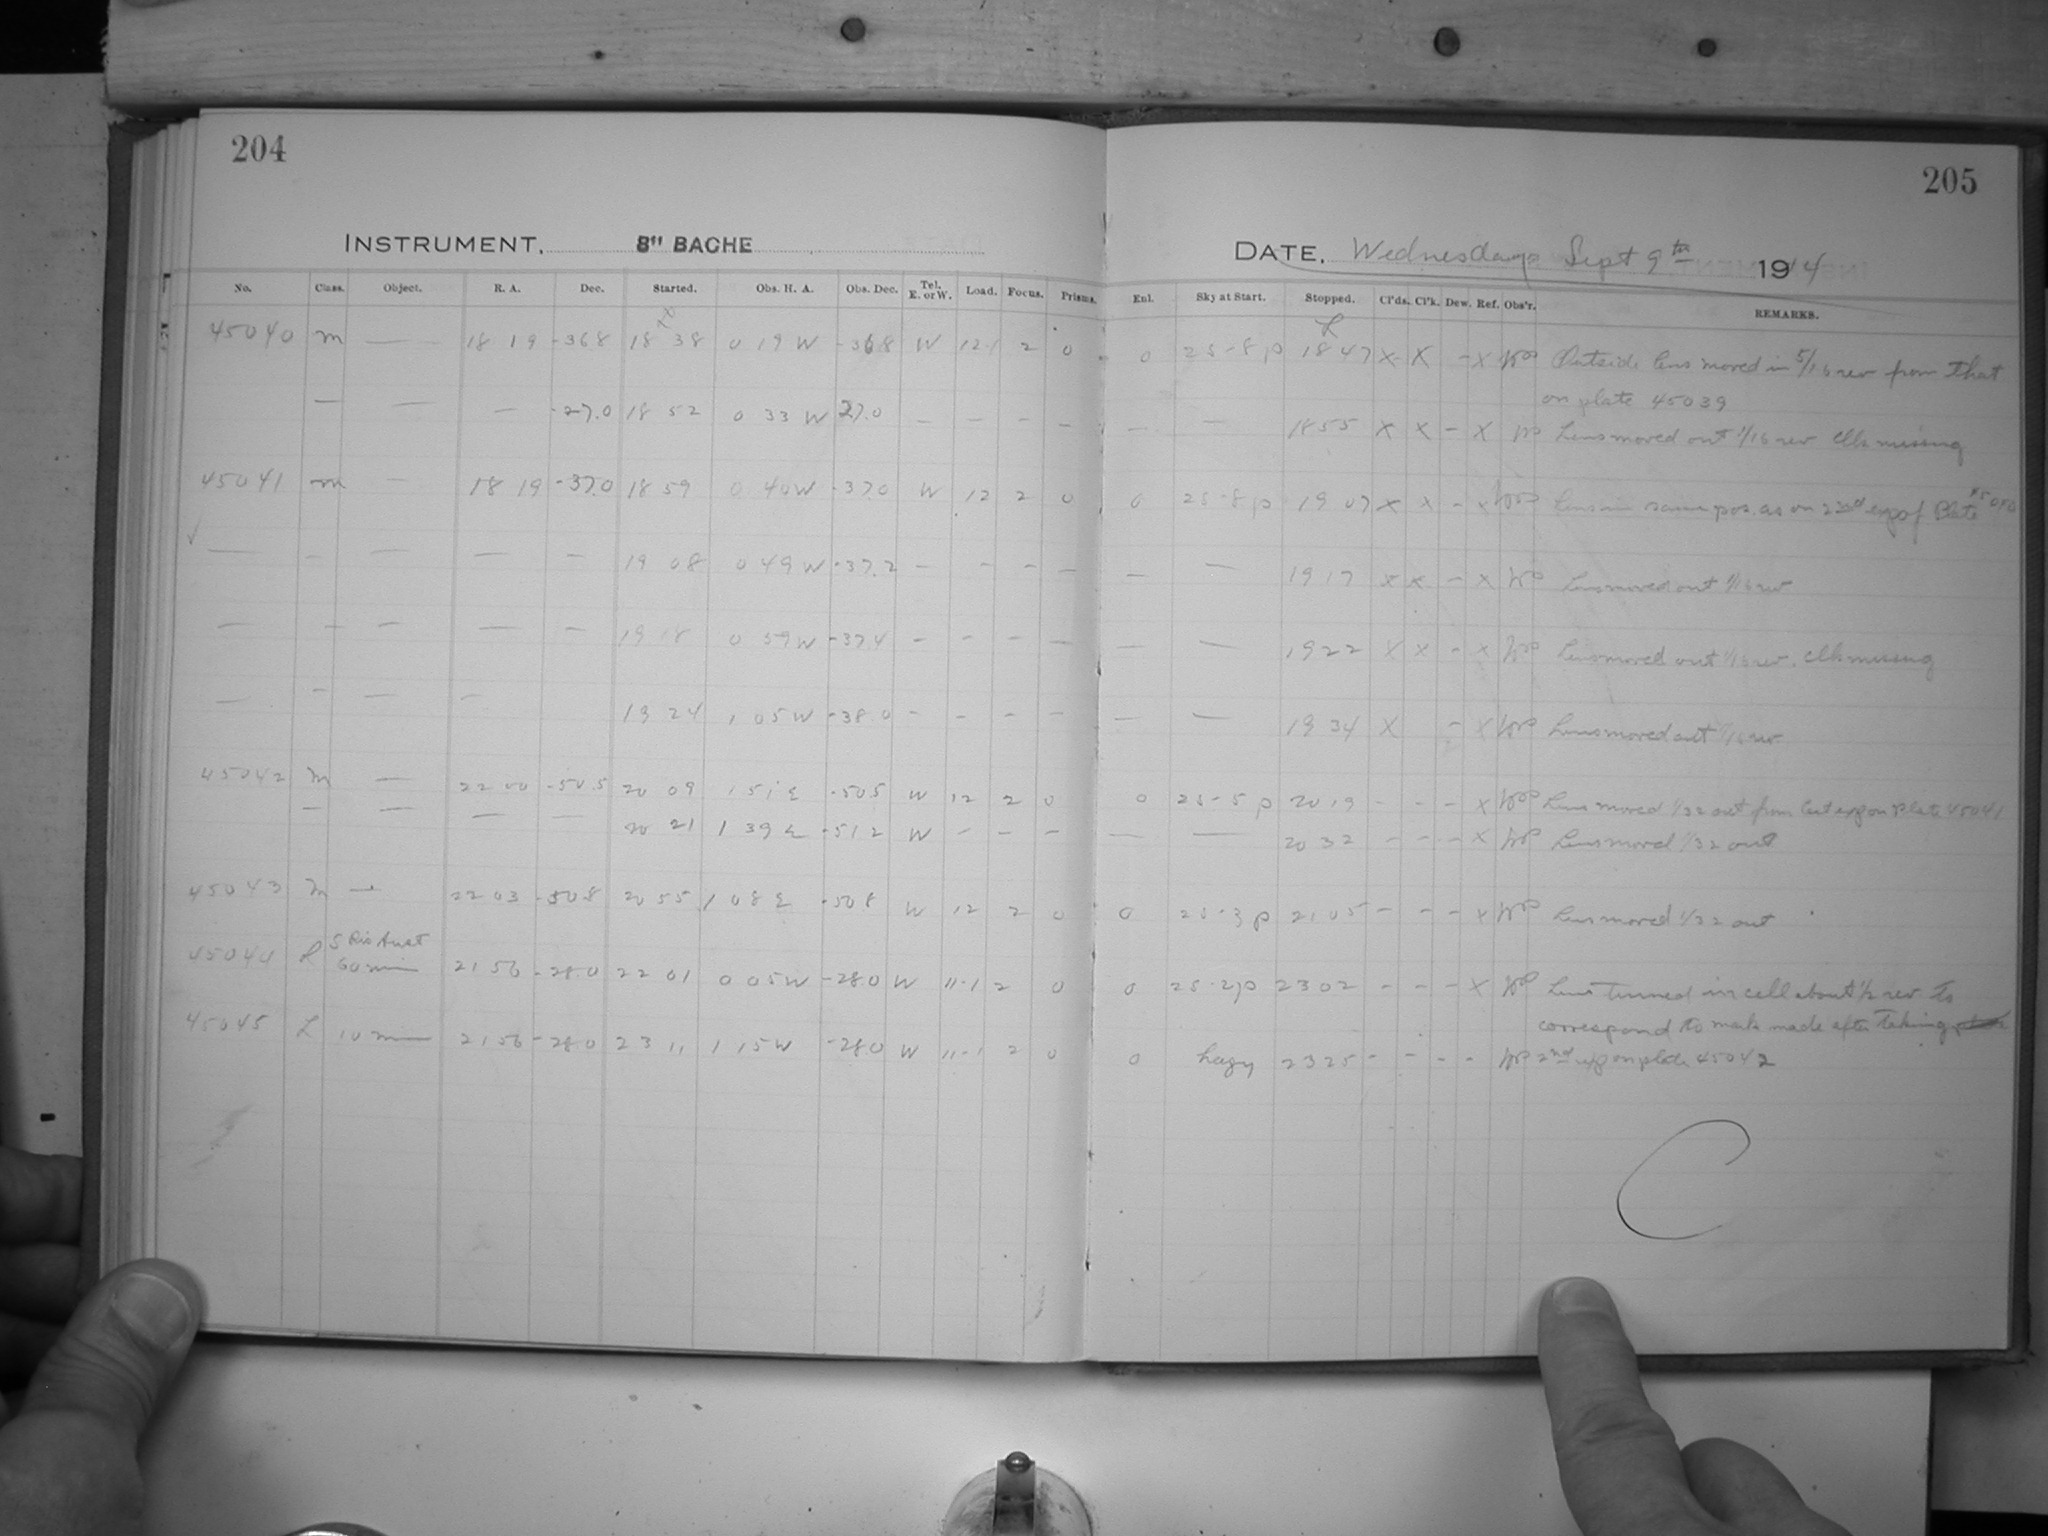 204
205
INSTRUMENT. 8" BACHE
DATE. Wednesday Sept 9th 1914
No. Class. Object. R. A. Dec. Started. Obs. H. A. Obs. Dec. Tel. E. or W. Load. Focus. Prisms. Enl. Sky at Start. Stopped. Cl'ds. Cl'k. Dew. Ref. Obs'r. REMARKS.
45040 m — 18 19 -36.8 18 38 0 19 W -36.8 W 12-1 2 0 0 25-8 p 18 47 X X - X WP Outside lens moved in 5/16 rev from that
on plate 45039
— — — -27.0 18 52 0 33 W 27.0 — — — — — — 18 55 X X - X WP Lens moved out 1/16 rev Clk missing
45041 m — 18 19 -37.0 18 59 0 40 W -37.0 W 12 2 0 0 25-8 p 19 07 X X - X WP Lens in same pos. as on 2nd exp of Plate 45040
— — — — — 19 08 0 49 W -37.2 — — — — — — 19 17 X X - X WP Lens moved out 1/16 rev
— — — — — 19 18 0 59 W -37.4 — — — — — — 19 22 X X - X WP Lens moved out 1/16 rev. Clk missing
— — — — 19 24 1 05 W -38.0 — — — — — — 19 34 X - X WP Lens moved out 1/16 rev.
45042 m — 22 00 -50.5 20 09 1 51 E -50.5 W 12 2 0 0 25-5 p 20 19 - - - X WP Lens moved 1/32 out from last exp on Plate 45041
— — — — 20 21 1 39 E -51.2 W — — — — — 20 32 - - - X WP Lens moved 1/32 out
45043 m — 22 03 -50.8 20 55 1 08 E -50.8 W 12 2 0 0 25-3 p 21 05 - - - X WP Lens moved 1/32 out
45044 L 5 Pis Aust
60 min 21 56 -28.0 22 01 0 05 W -28.0 W 11-1 2 0 0 25-2 p 23 02 - - - X WP Lens turned in cell about 1/2 rev to
correspond to mark made after taking
45045 L 10 m 21 56 -28.0 23 11 1 15 W -28.0 W 11-1 2 0 0 hazy 23 25 - - - - WP 2nd exp on plate 45042
C